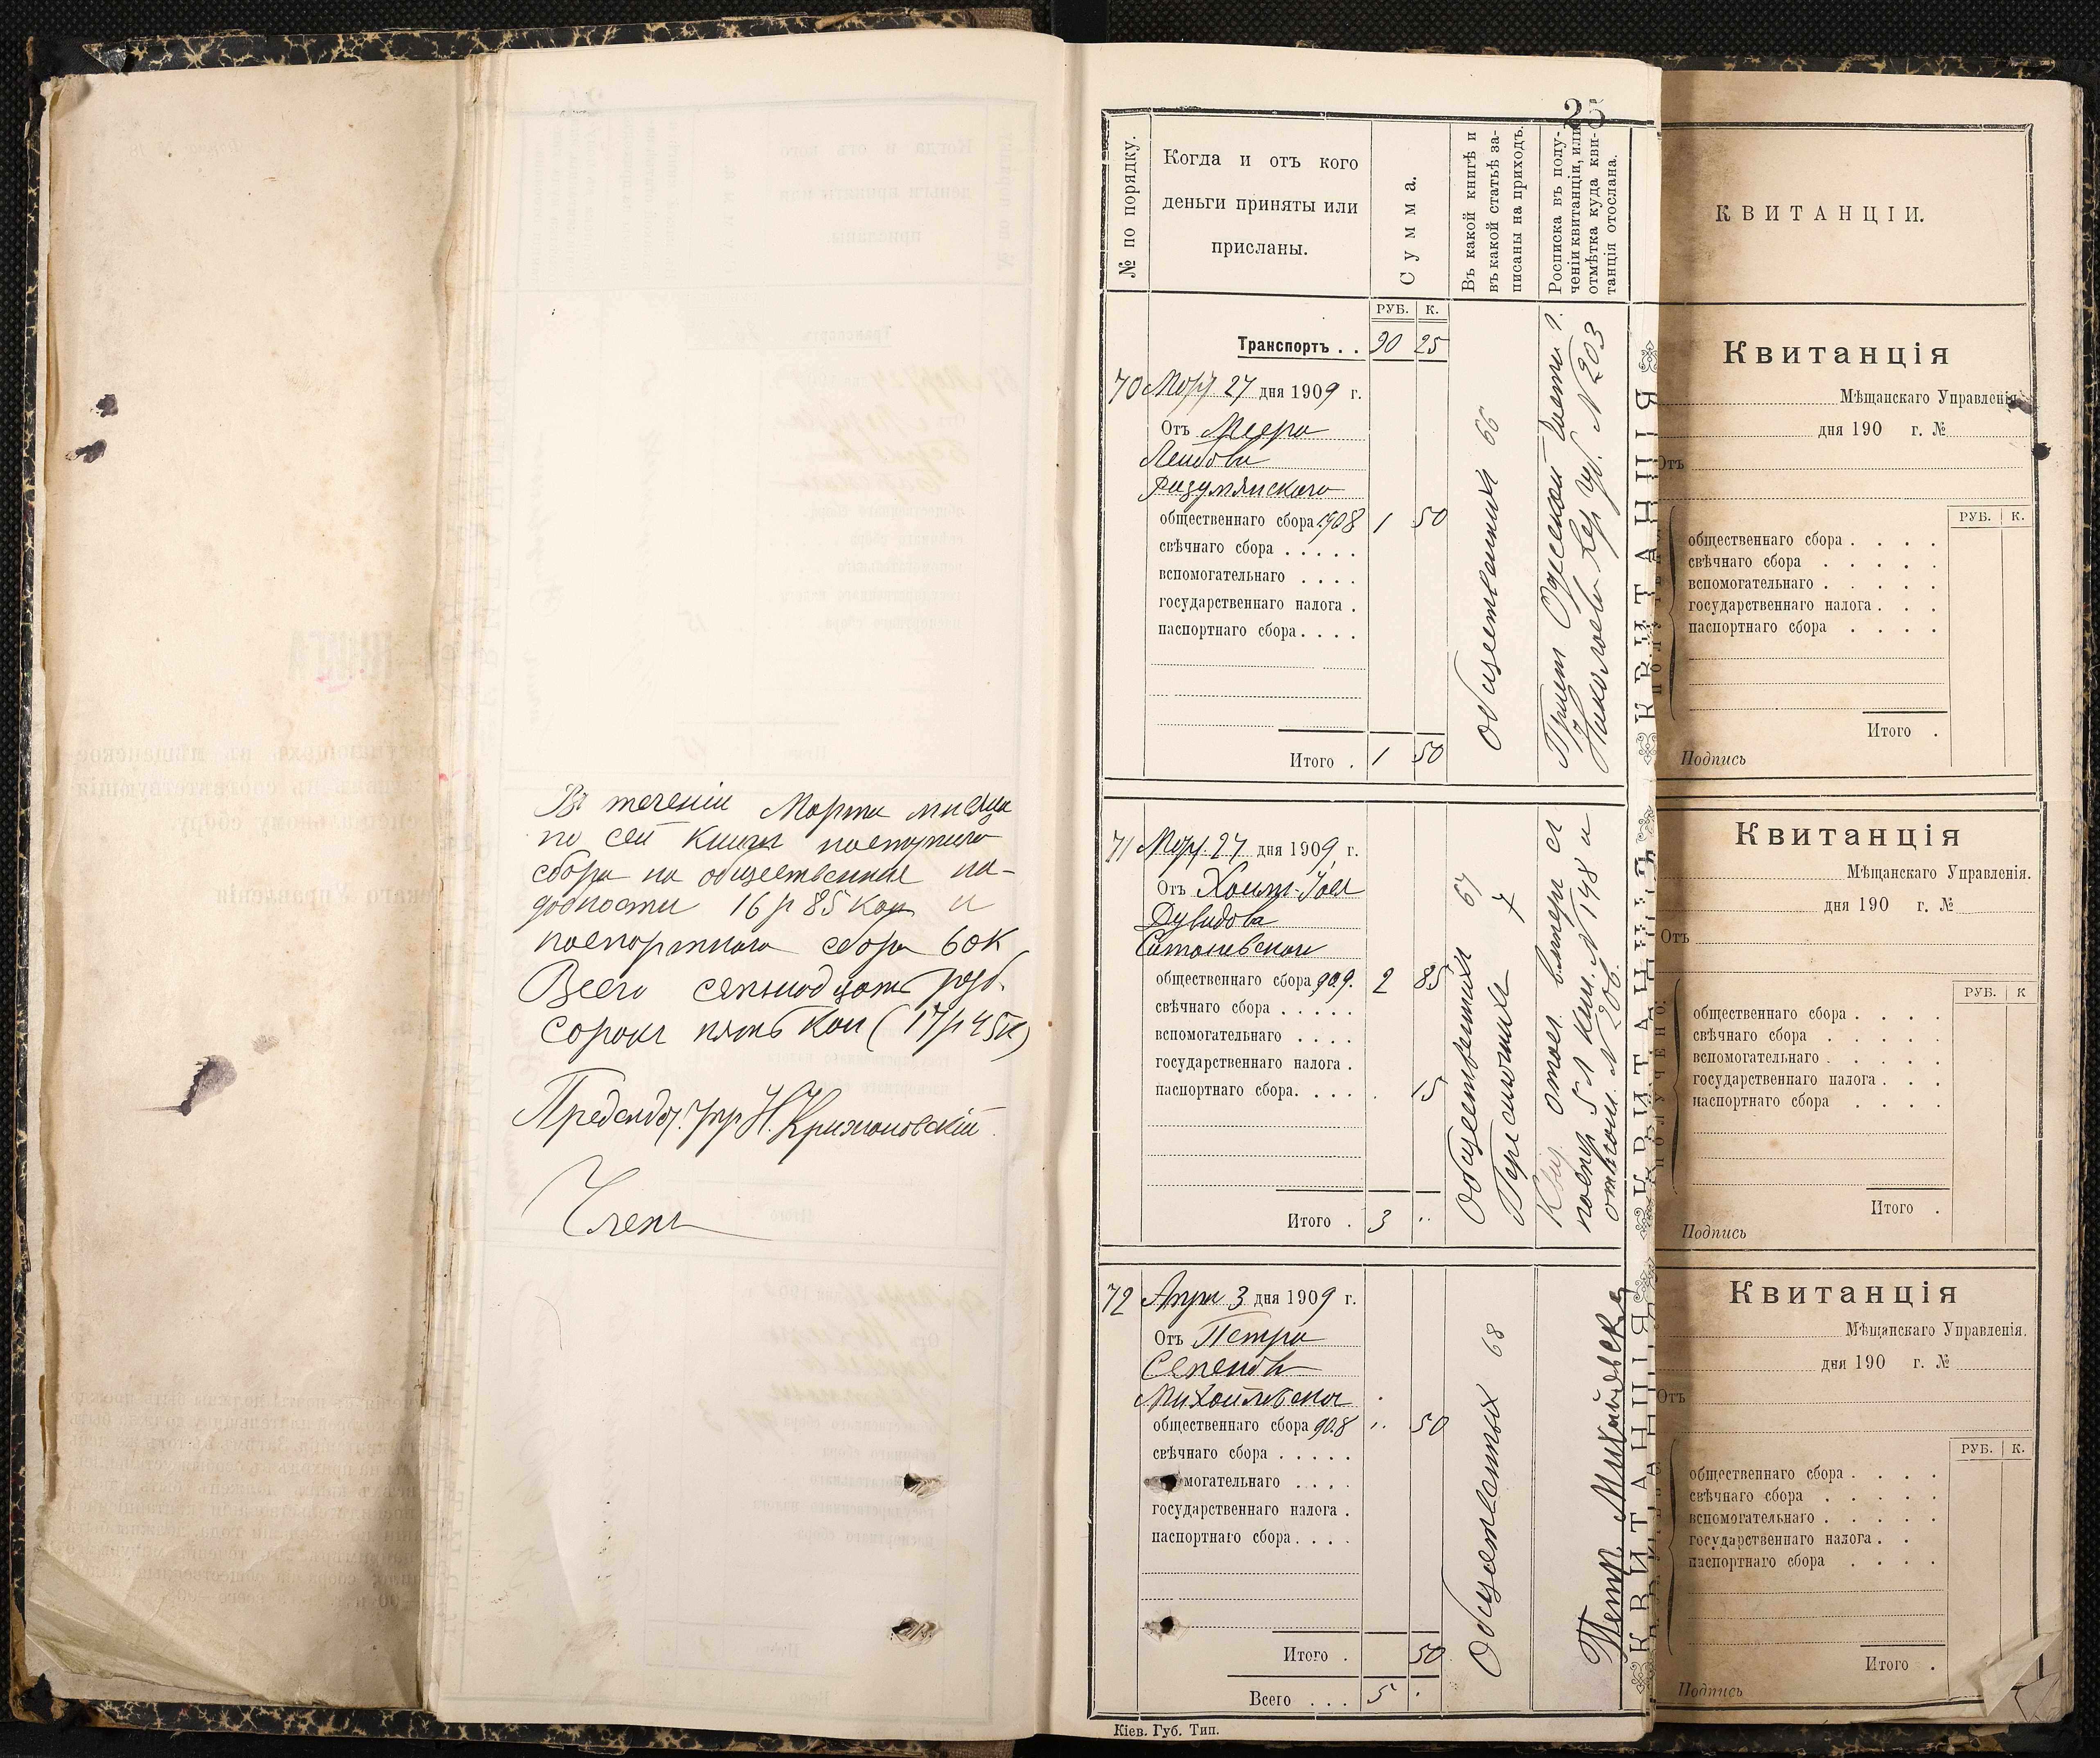 Въ теченіи Марта мѣсяца
по сей книгѣ поступило
сбора на общественныя на-
добности 16 р 85 коп и
паспортного сбора 60 к
Всего семнадцать руб.
сорокъ пять коп (17 р 45 к)
Н. Крижановскій
Членъ
25
№ по порядку.
Когда и отъ кого
деньги приняты или
присланы.
Сумма.
Въ какой книгѣ и
въ какой статьѣ за-
писаны на приходъ.
Росписка въ полу-
ченіи квитанціи, или
отмѣтка куда кви-
танція отослана.
РУБ. К.
Транспортъ . . 90 25
70 Мар. 27 дня 1909 г.
Отъ Меера
Лейбова
Разумянскаго
общественнаго сбора 1908 1 50
свѣчнаго сбора . . . . .
вспомогательнаго . . . .
государственнаго налога .
паспортнаго сбора . . . .
Итого . 1 50
Общественныя 66
№ 203
71 Мар. 27 дня 1909 г.
Отъ Хаим-
Дувидова
общественнаго сбора 909. 2 85
свѣчнаго сбора . . . . .
вспомогательнаго . . . .
государственнаго налога .
паспортнаго сбора. . . . 15
Итого . 3 ..
Общественныя 67
7
№ 198 и
№ 206.
72 Апрл 3 дня 1909 г.
Отъ Петра
Семенова
Михайловскаго
общественнаго сбора 908 .. 50
свѣчнаго сбора . . . . .
могательнаго . . . .
государственнаго налога .
паспортнаго сбора . . . .
Итого . 50
Всего . . . 5 .
Общественныя 68
Петр. Михайловскій
Кіев. Губ. Тип.
КВИТАНЦІЯ
КВИТАНЦІЯ
КВИТАНЦІЯ
КВИТАНЦІИ.
Квитанція
Мѣщанскаго Управленія
дня 190 г. №
Отъ
РУБ. К.
общественнаго сбора . . . .
свѣчнаго сбора . . . . .
вспомогательнаго . . . . .
государственнаго налога . . .
паспортнаго сбора . . . .
Итого .
Подпись
Квитанція
Мѣщанскаго Управленія.
дня 190 г. №
Отъ
РУБ. К
общественнаго сбора . . . .
свѣчнаго сбора . . . . .
вспомогательнаго . . . . .
государственнаго налога . . .
паспортнаго сбора . . . .
Итого .
Подпись
Квитанція
Мѣщанскаго Управленія.
дня 190 г. №
Отъ
РУБ. К.
общественнаго сбора . . . .
свѣчнаго сбора . . . . .
вспомогательнаго . . . . .
государственнаго налога . .
паспортнаго сбора . . . .
Итого .
Подпись